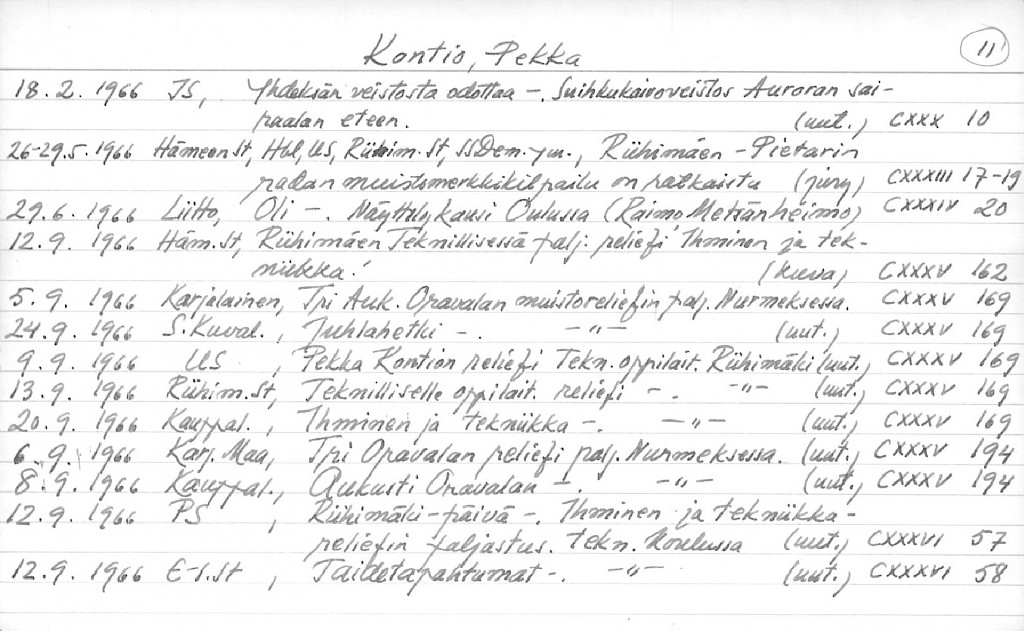 11
Kontio, Pekka
18.2.1966 IS, Yhdeksän veistosta odottaa -. Suihkukaivoveistos Auroran sai-
raalan eteen. (uut.) CXXX 10
26-29.5.1966 Hämeen St, Hbl, US, Riihim.St, SSDem. ym., Riihimäen - Pietarin
radan muistomerkkikilpailu on ratkaistu (jury) CXXXIII 17-19
29.6.1966 Liitto, Oli -. Näyttelykausi Oulussa (Raimo Metsänheimo) CXXXIV 20
12.9.1966 Häm.St, Riihimäen Teknillisessä palj. reliefi "Ihminen ja tek-
niikka" (kuva) CXXXV 162
5.9.1966 Karjalainen, Tri Auk. Oravalan muistoreliefin palj. Nurmeksessa. CXXXV 169
24.9.1966 S.Kuval., Juhlahetki -. -"- (uut.) CXXXV 169
9.9.1966 US, Pekka Kontion reliefi Tekn. oppilait. Riihimäki (uut.) CXXXV 169
13.9.1966 Riihim.St, Teknilliselle oppilait. reliefi -. -"- (uut.) CXXXV 169
20.9.1966 Kauppal., Ihminen ja tekniikka -. -"- (uut.) CXXXV 169
6.9.1966 Karj. Maa, Tri Oravalan reliefi palj. Nurmeksessa. (uut.) CXXXV 194
8.9.1966 Kauppal., Aukusti Oravalan -. -"- (uut.) CXXXV 194
12.9.1966 PS, Riihimäki-päivä -. Ihminen ja tekniikka-
reliefin paljastus. tekn. koulussa (uut.) CXXXVI 57
12.9.1966 E-S.St, Taidetapahtumat -. -"- (uut.) CXXXVI 58